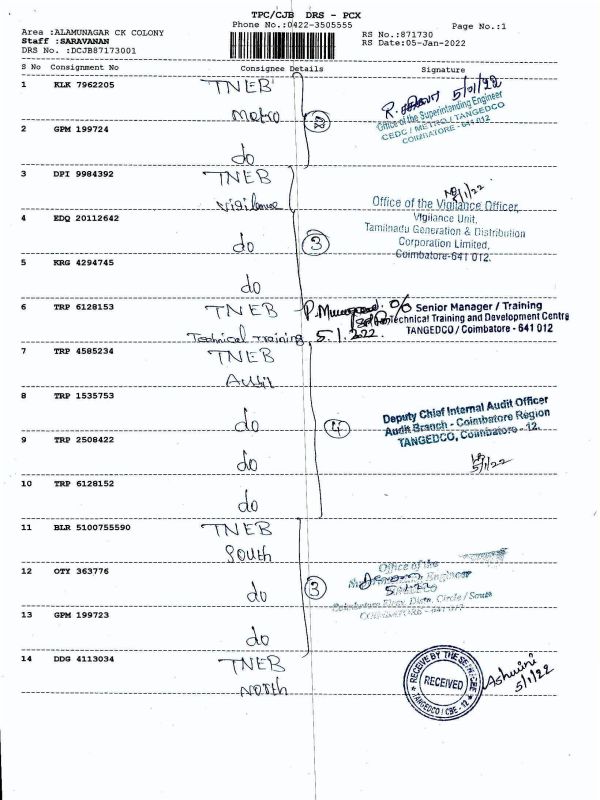 TPC/CJB DRS - PCX
Phone No.:0422-3505555
Page No.:1
Area :ALAMUNAGAR CK COLONY
Staff :SARAVANAN
DRS No. :DCJB87173001
RS No.:871730
RS Date:05-Jan-2022
S No Consignment No Consignee Details Signature
1 KLK 7962205 TNEB
Metro
5/01/22
Office of the Superintending Engineer
CEDC / METRO / TANGEDCO
COIMBATORE - 641 012
2 GPM 199724
do
3 DPI 9984392 TNEB
Vigilance
5/1/22
Office of the Vigilance Officer,
Vigilance Unit,
Tamilnadu Generation & Distribution
Corporation Limited,
Coimbatore-641 012.
4 EDQ 20112642
do 3
5 KRG 4294745
do
6 TRP 6128153 TNEB
Technical Training 5.1.2022
O/O Senior Manager / Training
Technical Training and Development Centre
TANGEDCO / Coimbatore - 641 012
7 TRP 4585234 TNEB
Audit
8 TRP 1535753
do 4
Deputy Chief Internal Audit Officer
Audit Branch - Coimbatore Region
TANGEDCO, Coimbatore - 12.
9 TRP 2508422
do
5/1/22
10 TRP 6128152
do
11 BLR 5100755590 TNEB
South
12 OTY 363776
do 3
Office of the
Engineer
5/1/22
Coimbatore Elecy. Distn. Circle / South
COIMBATORE - 641 012
13 GPM 199723
do
14 DDG 4113034 TNEB
North
RECEIVED
TANGEDCO / CBE - 12
Ashwini
5/1/22